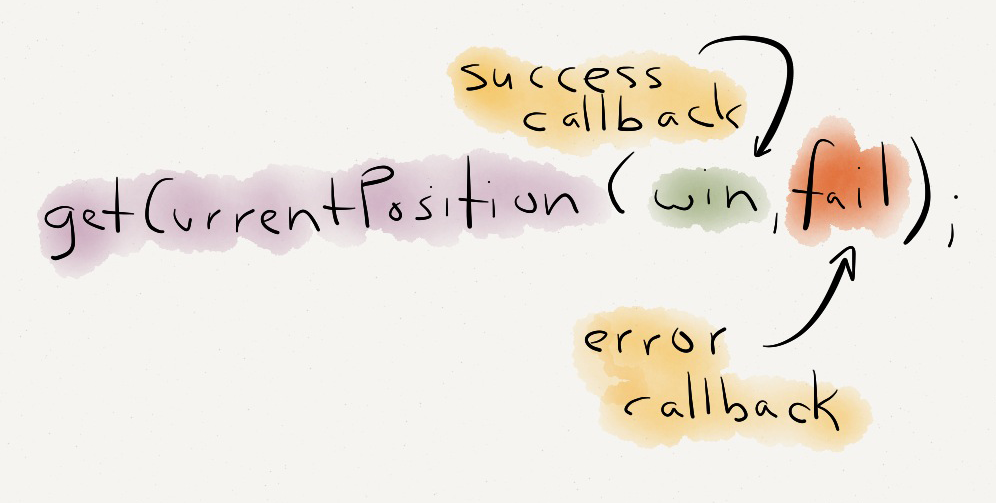 success
callback
getCurrentPosition(win,fail);
error
callback